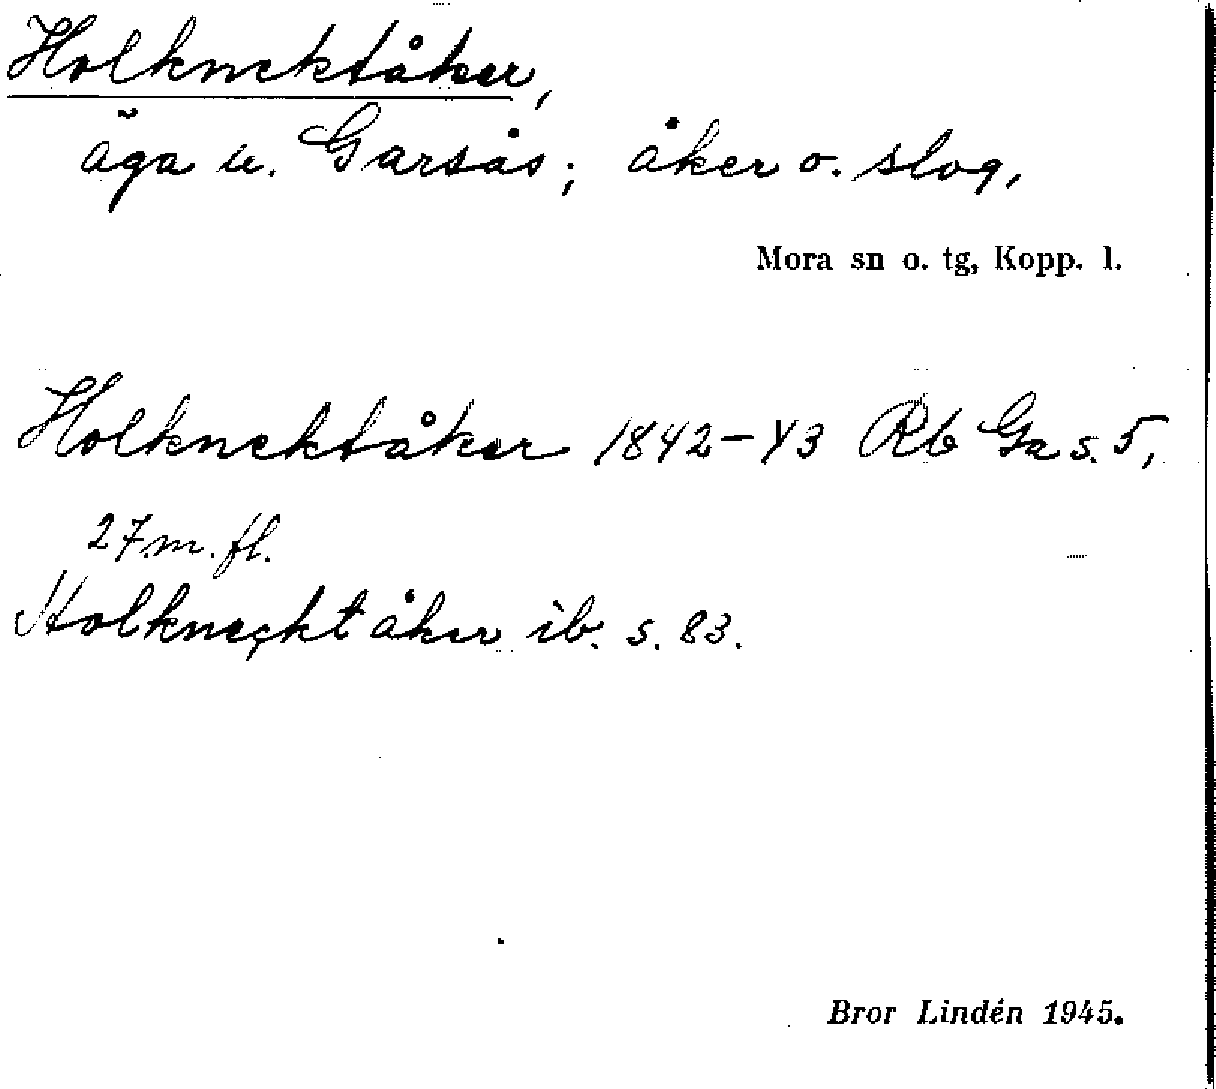 Holknektåker,
äga u. Garsås; åker o. slog,
Mora sn o. tg, Kopp. l.
Holknektåker 1842-43 Rb Ga s. 5,
27 m. fl.
Holkneckt åker ib. s. 83.
Bror Lindén 1945.